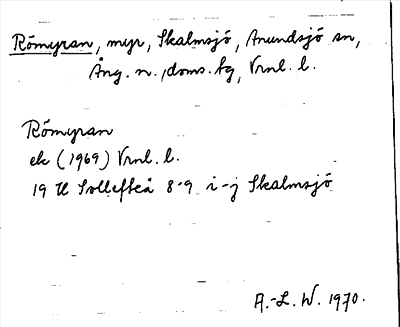 Römyran, myr, Skalmsjö, Anundsjö sn,
Ång. n., doms. tg, Vrnl. l.
Römyran
ek (1969) Vrnl. l.
19 H Sollefteå 8-9 i-j Skalmsjö
A.-L. W. 1970.